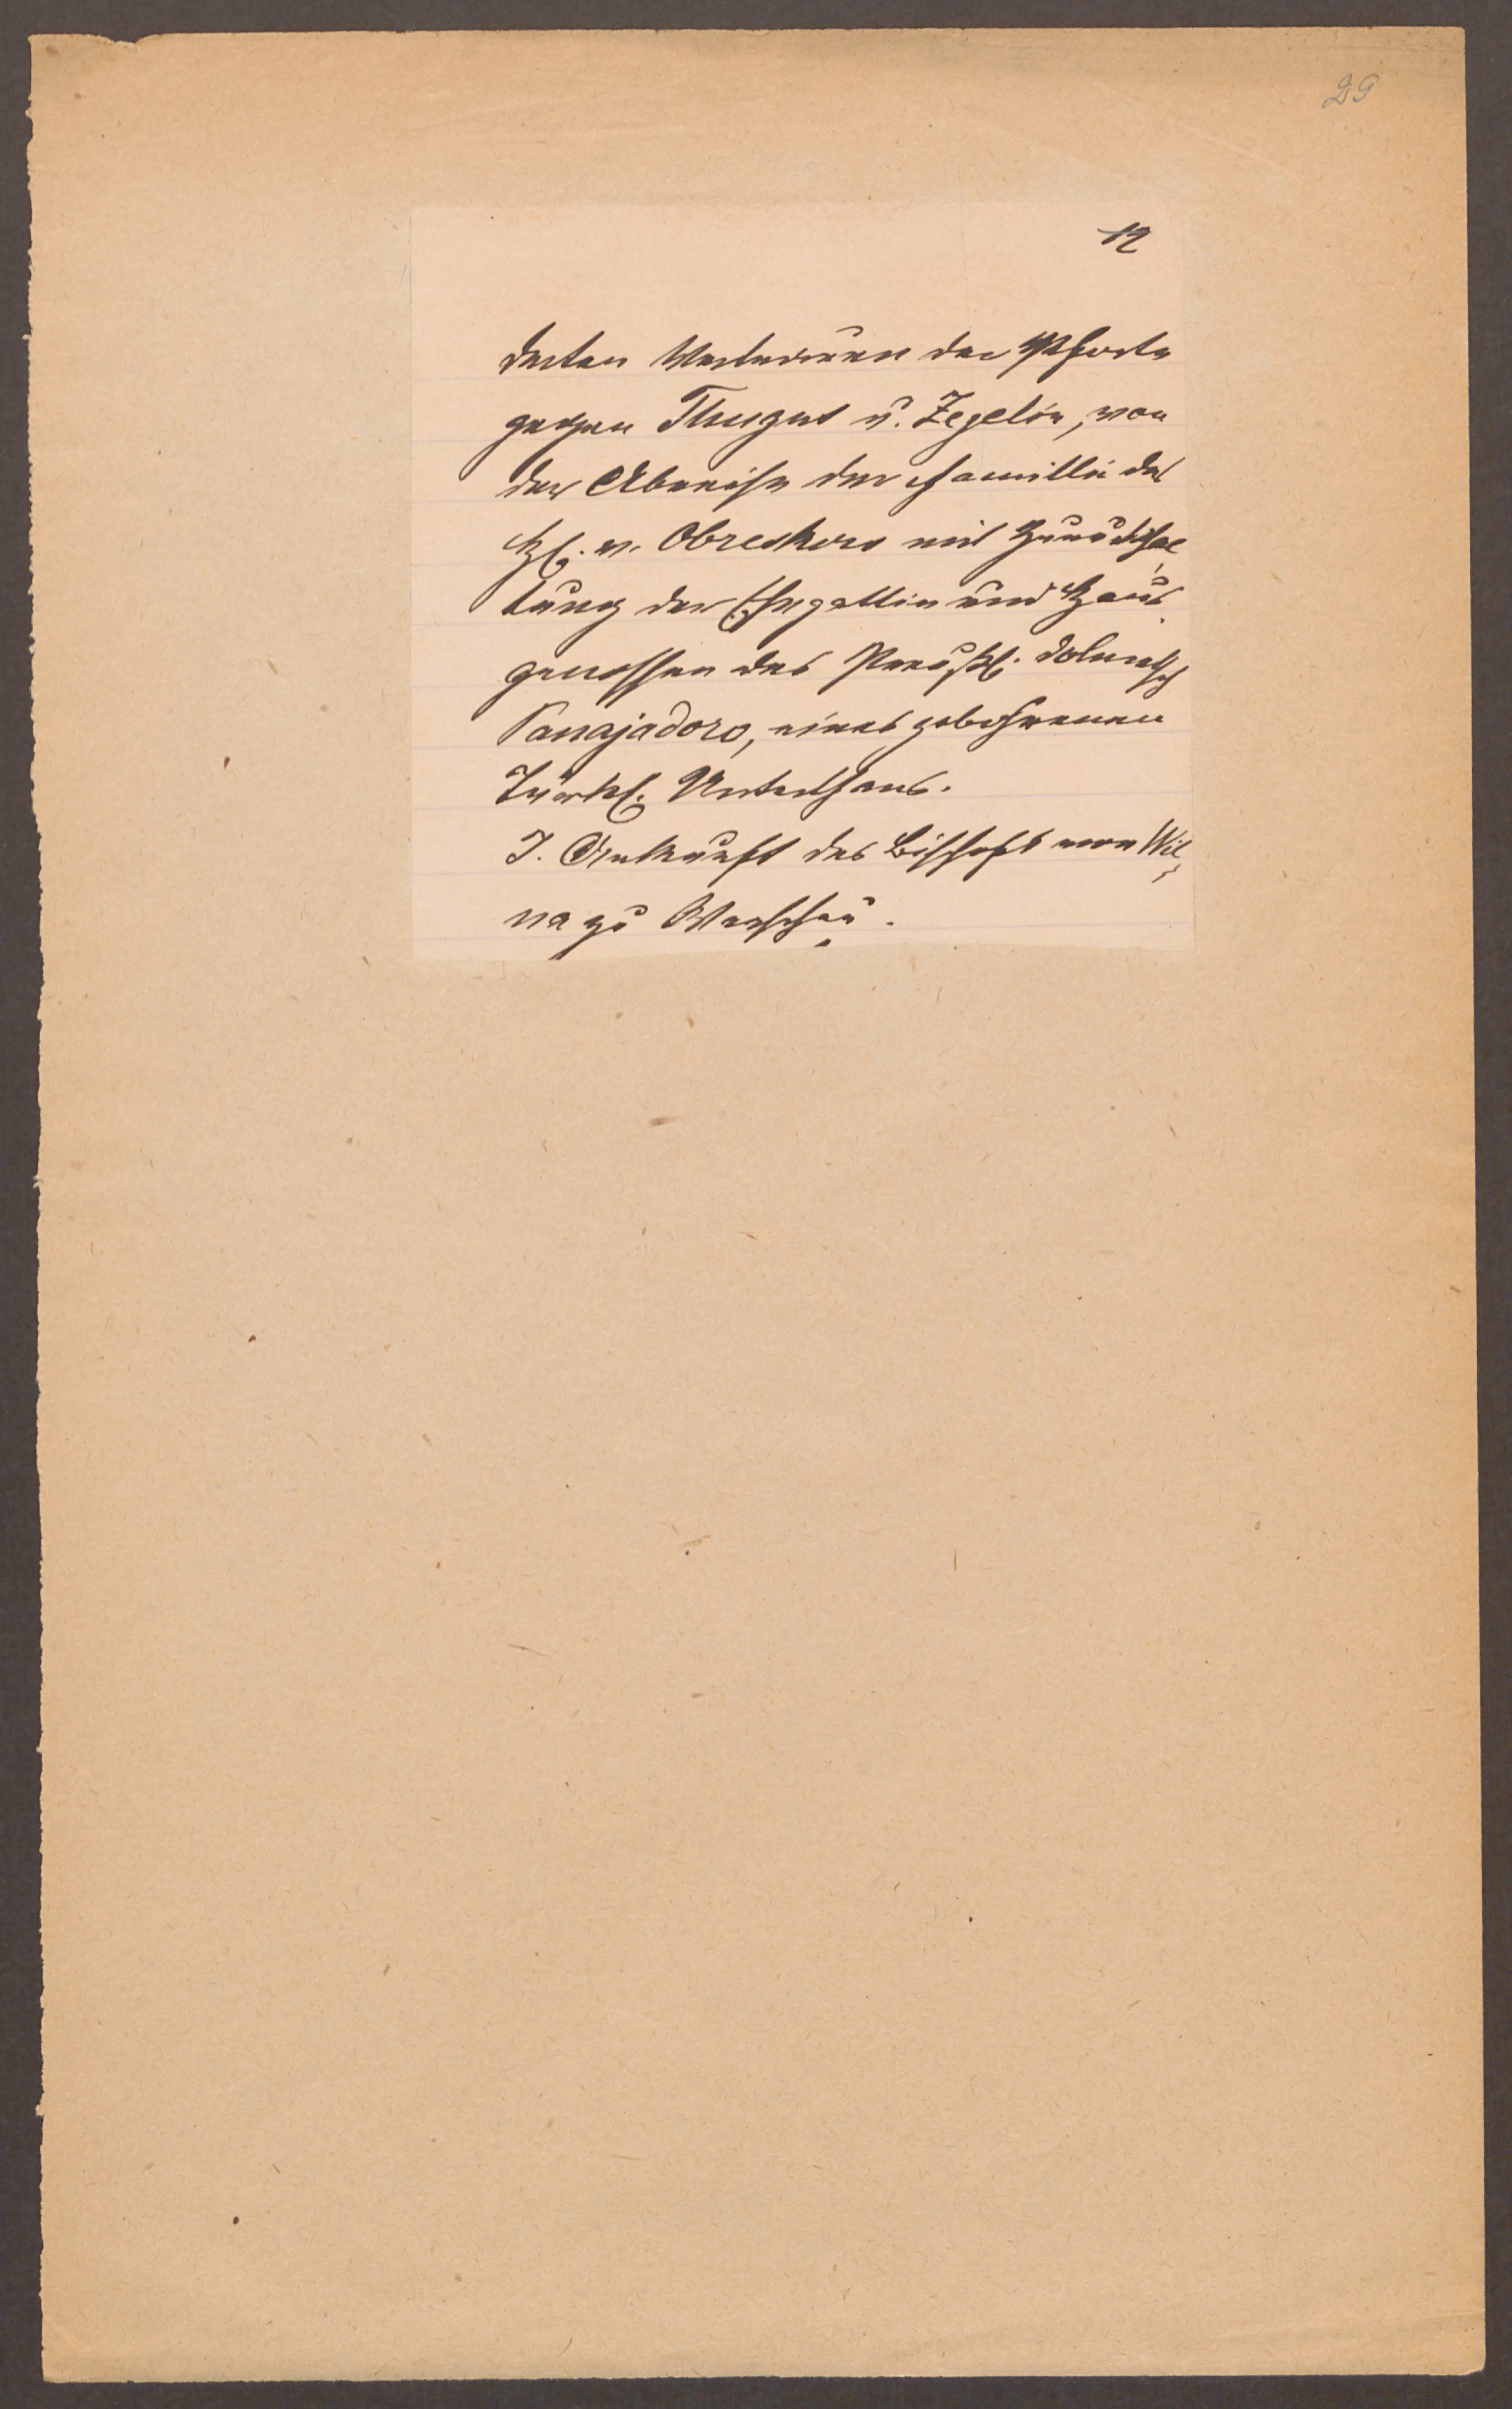 29
12
derten Vertrauen der Pforte
gegen Thugut u. Zegelin, von
der Abreise der Familie des
H. v. Obreskow mit Zurückhal
tung der Ehegattin und Haus
genossen des Preußl. Dolmetsch
Panajadoro, eines gebohrenen
Türkl. Unterthans.
J. Ankunft des Bischofs von Wil
na zu Warschau.